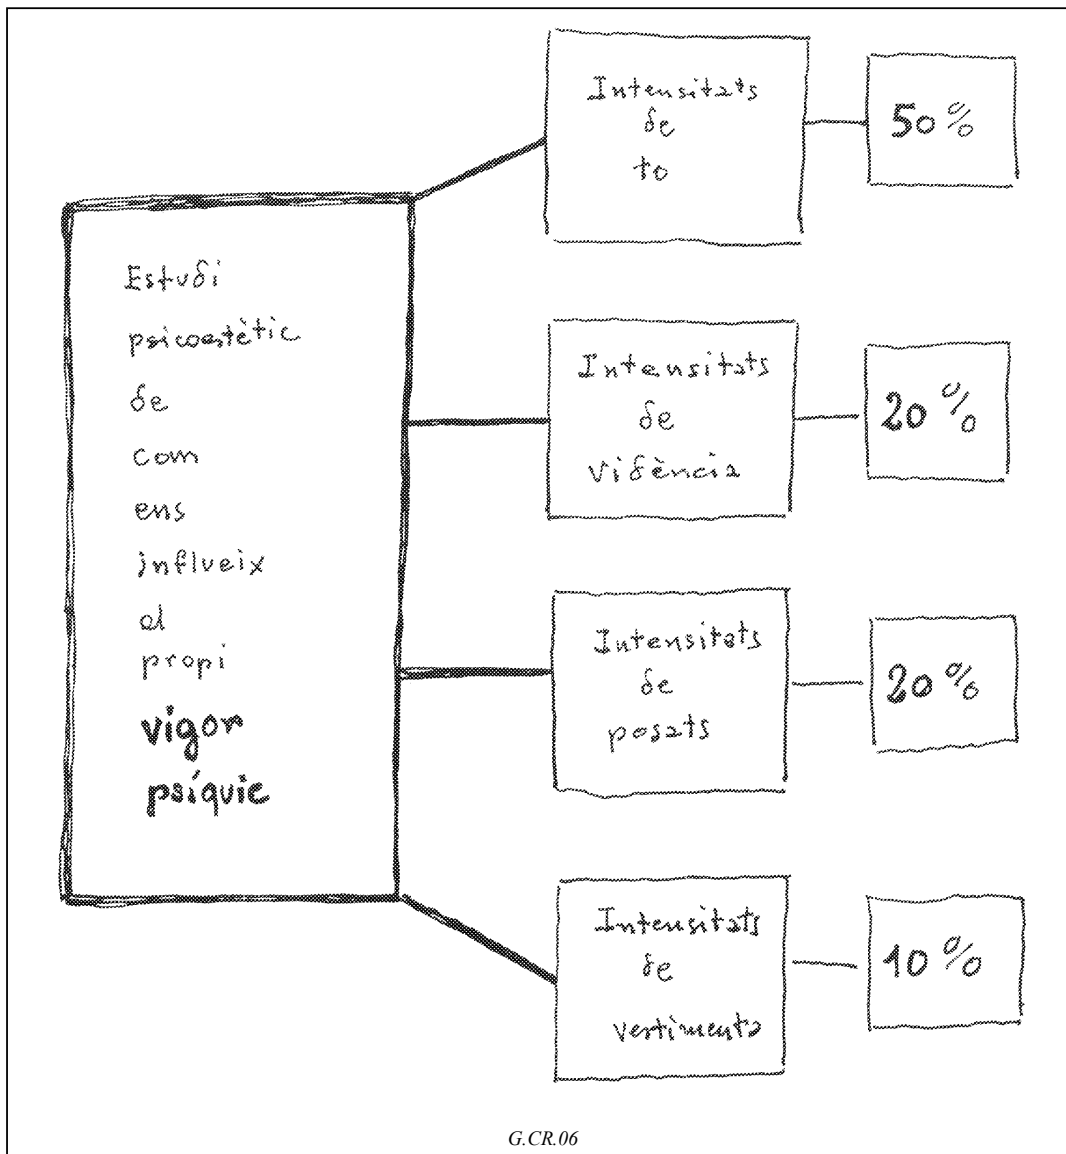 Estudi
psicoestètic
de
com
ens
influeix
el
propi
vigor
psíquic
Intensitats
de
to
50 %
Intensitats
de
vidència
20 %
Intensitats
de
posats
20 %
Intensitats
de
vestiments
10 %
G.CR.06